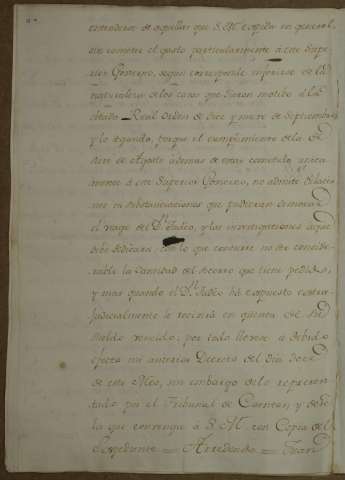 entenderse de aquellas que S. M. expida en general,
sin cometer el gasto particularmente a este Supe-
rior Govierno, segun corresponde inferirse de la
naturaleza de los casos que dieron motivo a la
citada Real Orden de diez y siete de Septiembre
y lo segundo, porque el cumplimiento de la de
siete de Agosto ademas de estar cometido unica
mente a este Superior Govierno, no admite dilacio
nes en substanciaciones que pudieran demorar
el viage del Dr. Tadeo, y las investigaciones a que
debe dedicarse, con lo que concurre no ser conside-
rable la cantidad del socorro que tiene pedido,
y mas quando el Dr. Tadeo ha expuesto extra-
judicialmente la recivirá en quenta de su
sueldo vencido; por todo llevese a debido
efecto mi anterior Decreto del dia doce
de este Mes, sin embargo de lo represen-
tado por el Tribunal de Cuentas, y dese
la que convenga a S. M. con Copia del
Expediente = Arredondo = Juan